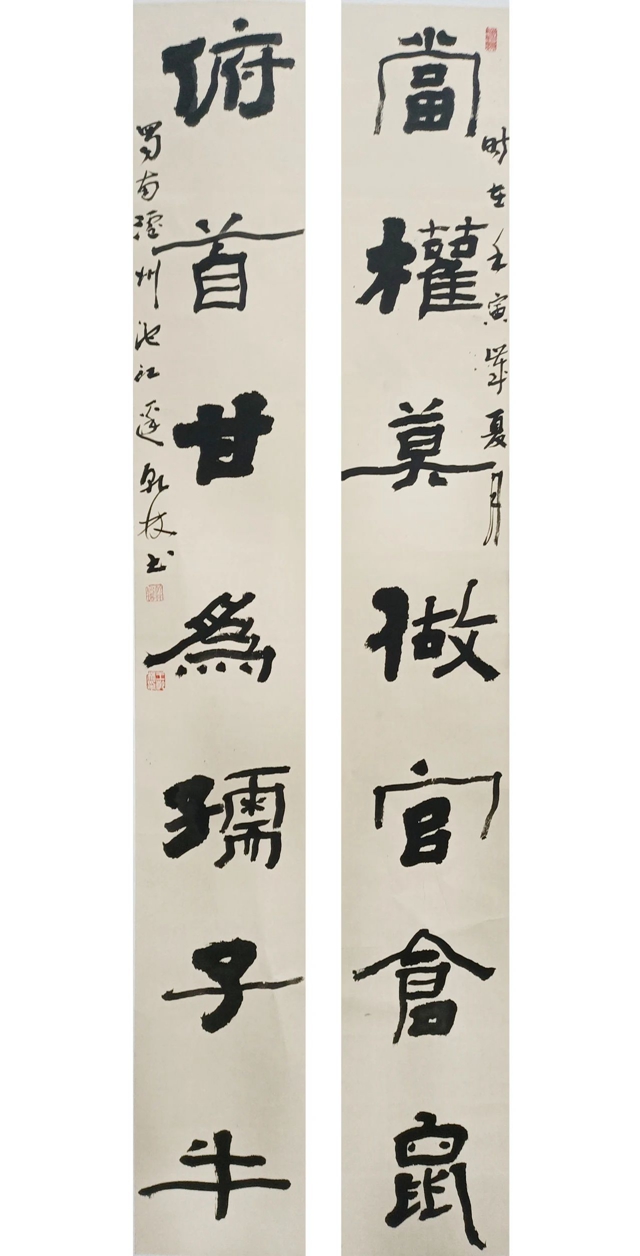 當權莫做官倉鼠
時在壬寅年夏月
俯首甘為孺子牛
蜀南瀘州池江邊乾枝书